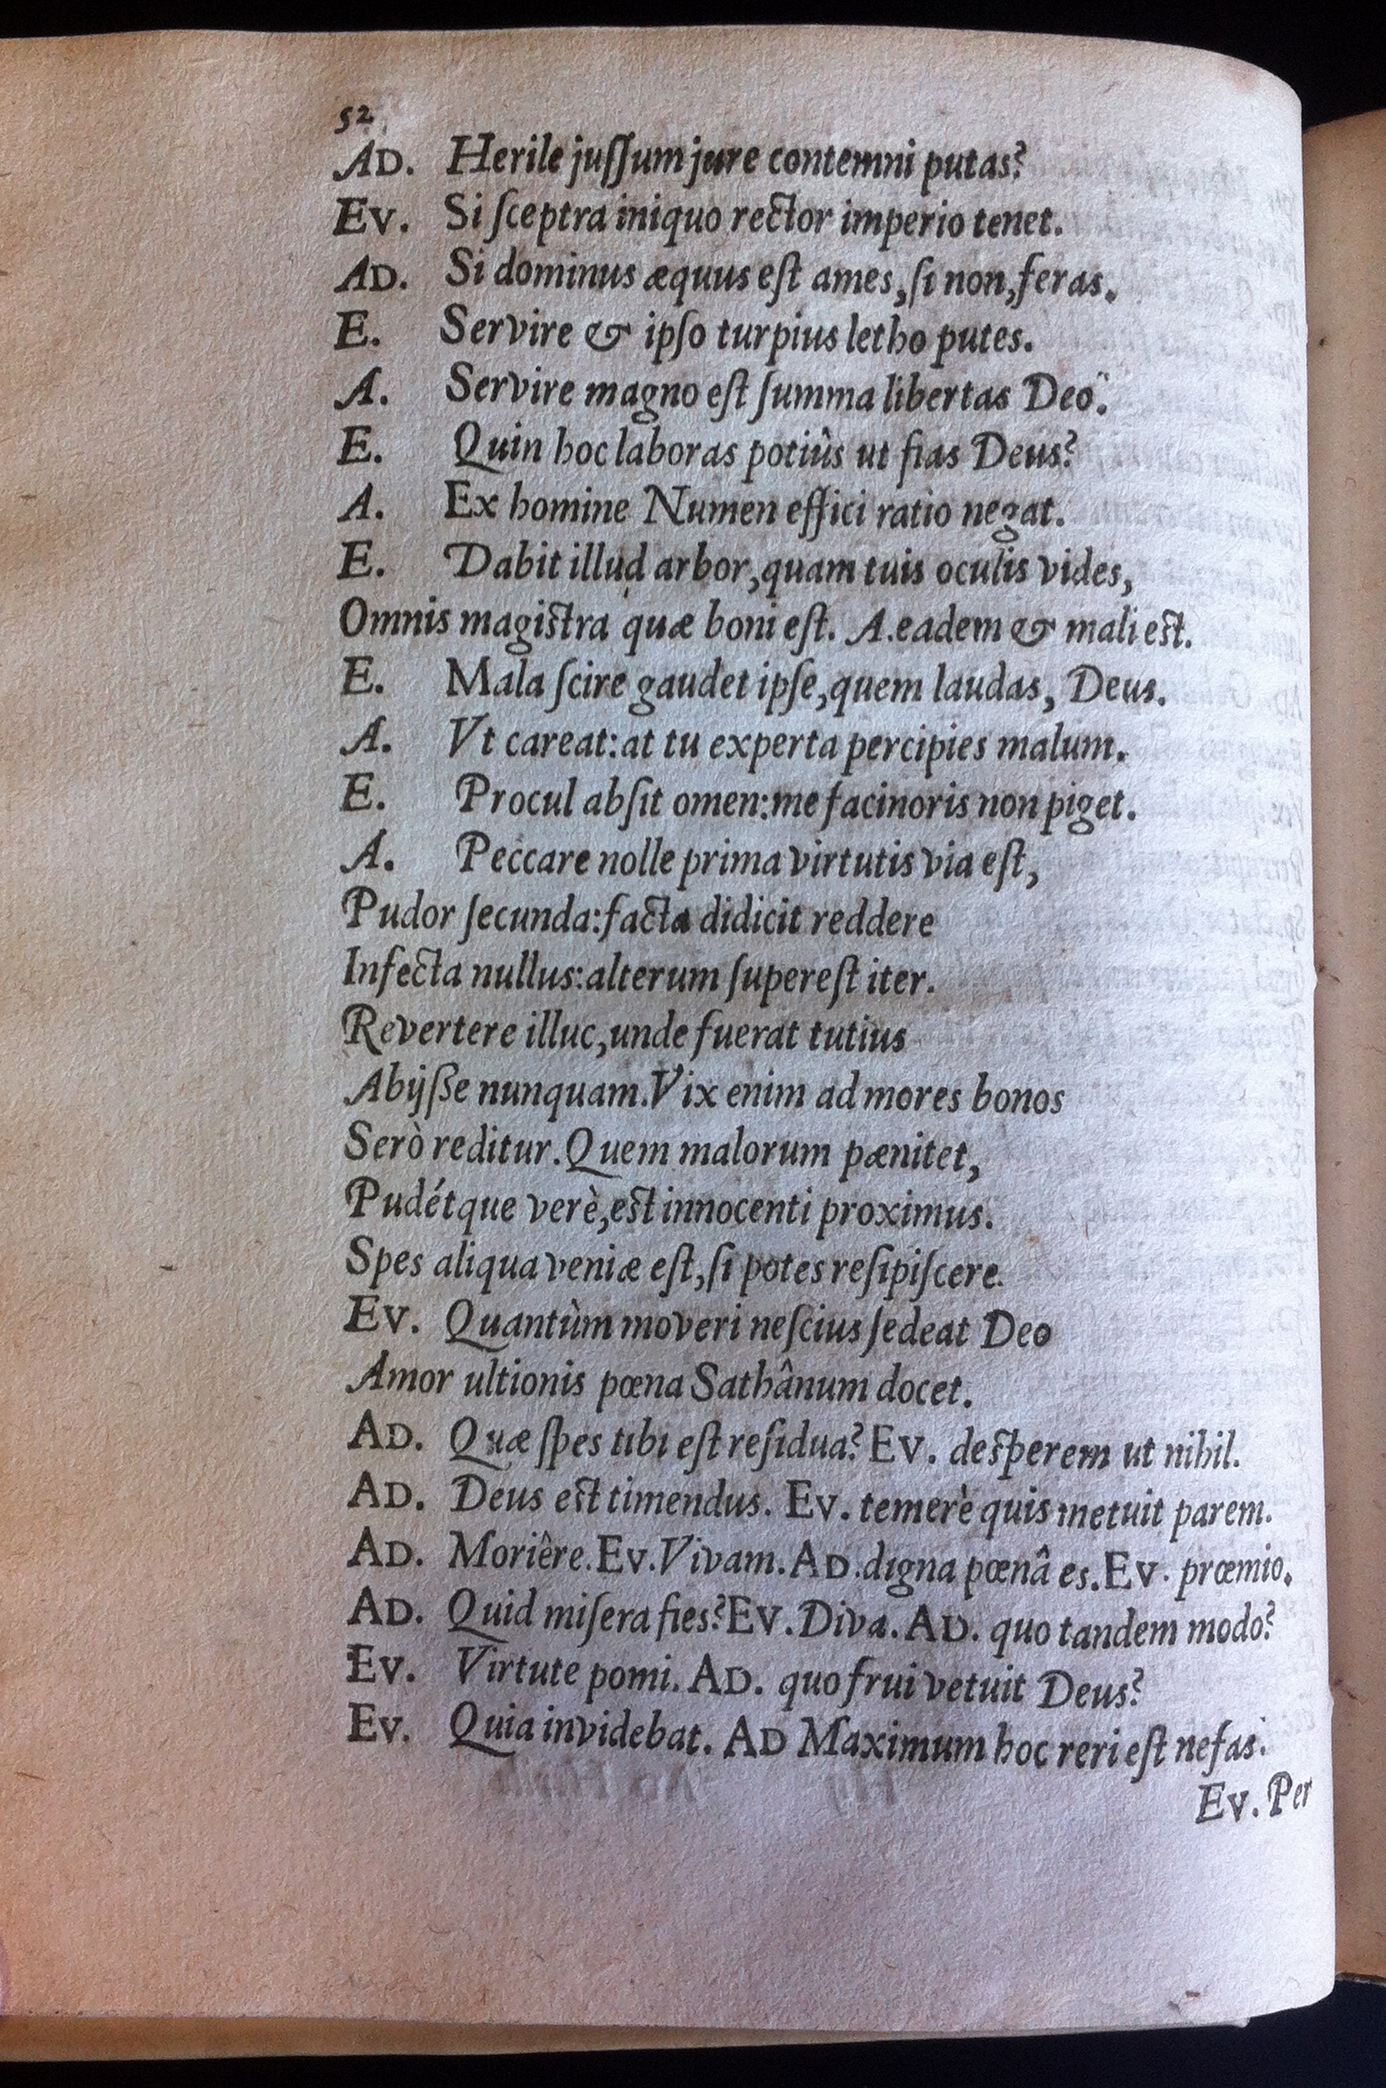 52
AD. Herile juſſum jure contemni putas?
EV. Si ſceptra iniquo rector imperio tenet.
AD. Si dominus æquus eſt ames, ſi non, feras.
E. Servire & ipſo turpius letho putes.
A. Servire magno eſt ſumma libertas Deo.
E. Quin hoc laboras potiùs ut fias Deus?
A. Ex homine Numen effici ratio negat.
E. Dabit illud arbor, quam tuis oculis vides,
Omnis magiſtra quæ boni eſt. A. eadem & mali eſt.
E. Mala ſcire gaudet ipſe, quem laudas, Deus.
A. Vt careat: at tu experta percipies malum.
E. Procul abſit omen: me facinoris non piget.
A. Peccare nolle prima virtutis via eſt,
Pudor ſecunda: facta didicit reddere
Infecta nullus: alterum ſupereſt iter.
Revertere illuc, unde fuerat tutius
Abijſſe nunquam. Vix enim ad mores bonos
Serò reditur. Quem malorum pænitet,
Pudétque verè, eſt innocenti proximus.
Spes aliqua veniæ eſt, ſi potes reſipiſcere.
EV. Quantùm moveri neſcius ſedeat Deo
Amor ultionis pœna Sathânum docet.
AD. Quæ ſpes tibi eſt reſidua? EV. deſperem ut nihil.
AD. Deus eſt timendus. EV. temerè quis metuit parem.
AD. Moriêre. EV. Vivam. AD. digna pœnâ es. EV. prœmio.
AD. Quid miſera fies? EV. Diva. AD. quo tandem modo?
EV. Virtute pomi. AD. quo frui vetuit Deus?
EV. Quia invidebat. AD Maximum hoc reri eſt nefas.
EV. Per